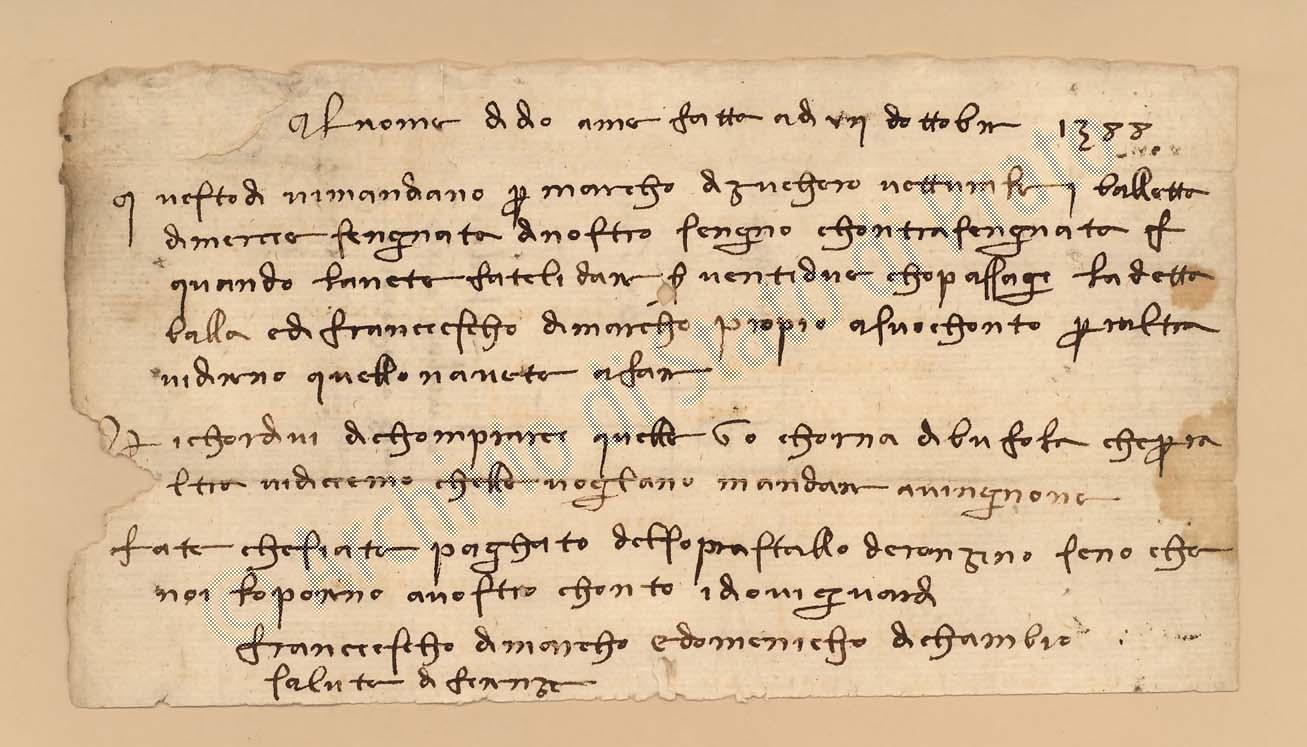 Al nome di dio ame fatta adi vii dottobre 1388
questo di vi mandiano per marcho di zuchero vetturale i balletta
di mercie sengnata di nostro sengno chontrasengnata
quando lavete fateli dare s ventidue cho passagi la detta
balla e di franciescho di marcho propio a suo chonto per altra
vi direno quello navete a fare
Richordivi di chomprare quelle chorna di bufole che per a
ltre vi diciemo chelle vogliano mandare a vingnone
fate che siate paghato del sopra stallo de ronzino se no che
noi lo porono a vostro chonto idio vi guardi
franciescho di marcho e domenicho di chambio
salute di firenze
© Archivio di Stato di Prato